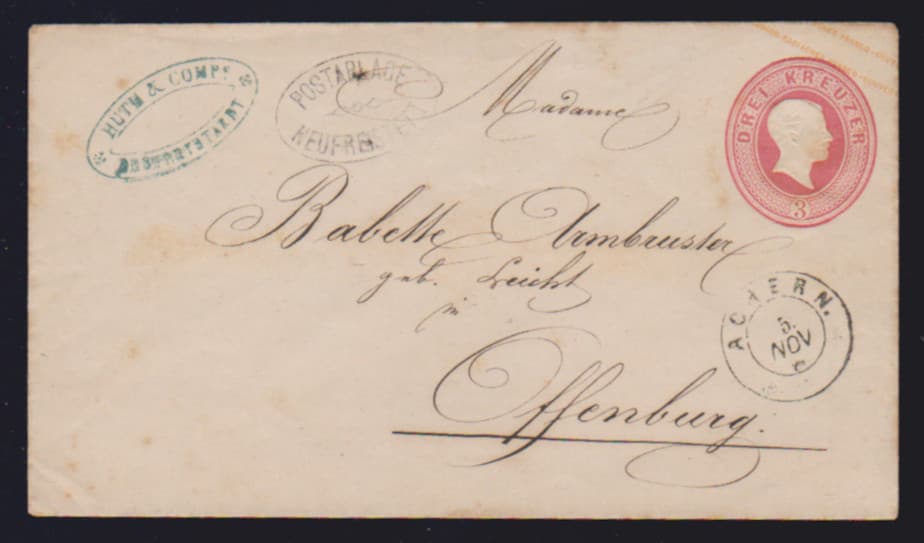 HUTH & COMP.
NEUFREISTAEDT
POSTABLAGE
NEUFREISTETT
Madame
DREI KREUZER
3
Babette Armbruster
geb. Leicht
in
Offenburg.
ACHERN.
5.
NOV